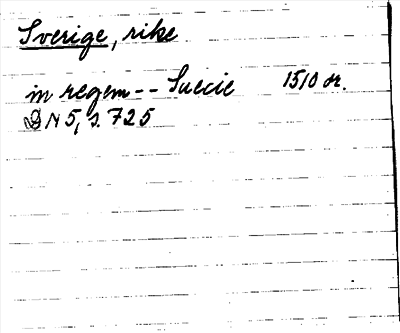 Sverige, rike
in regem -- Suecie 1510 or.
DN 5, s. 725